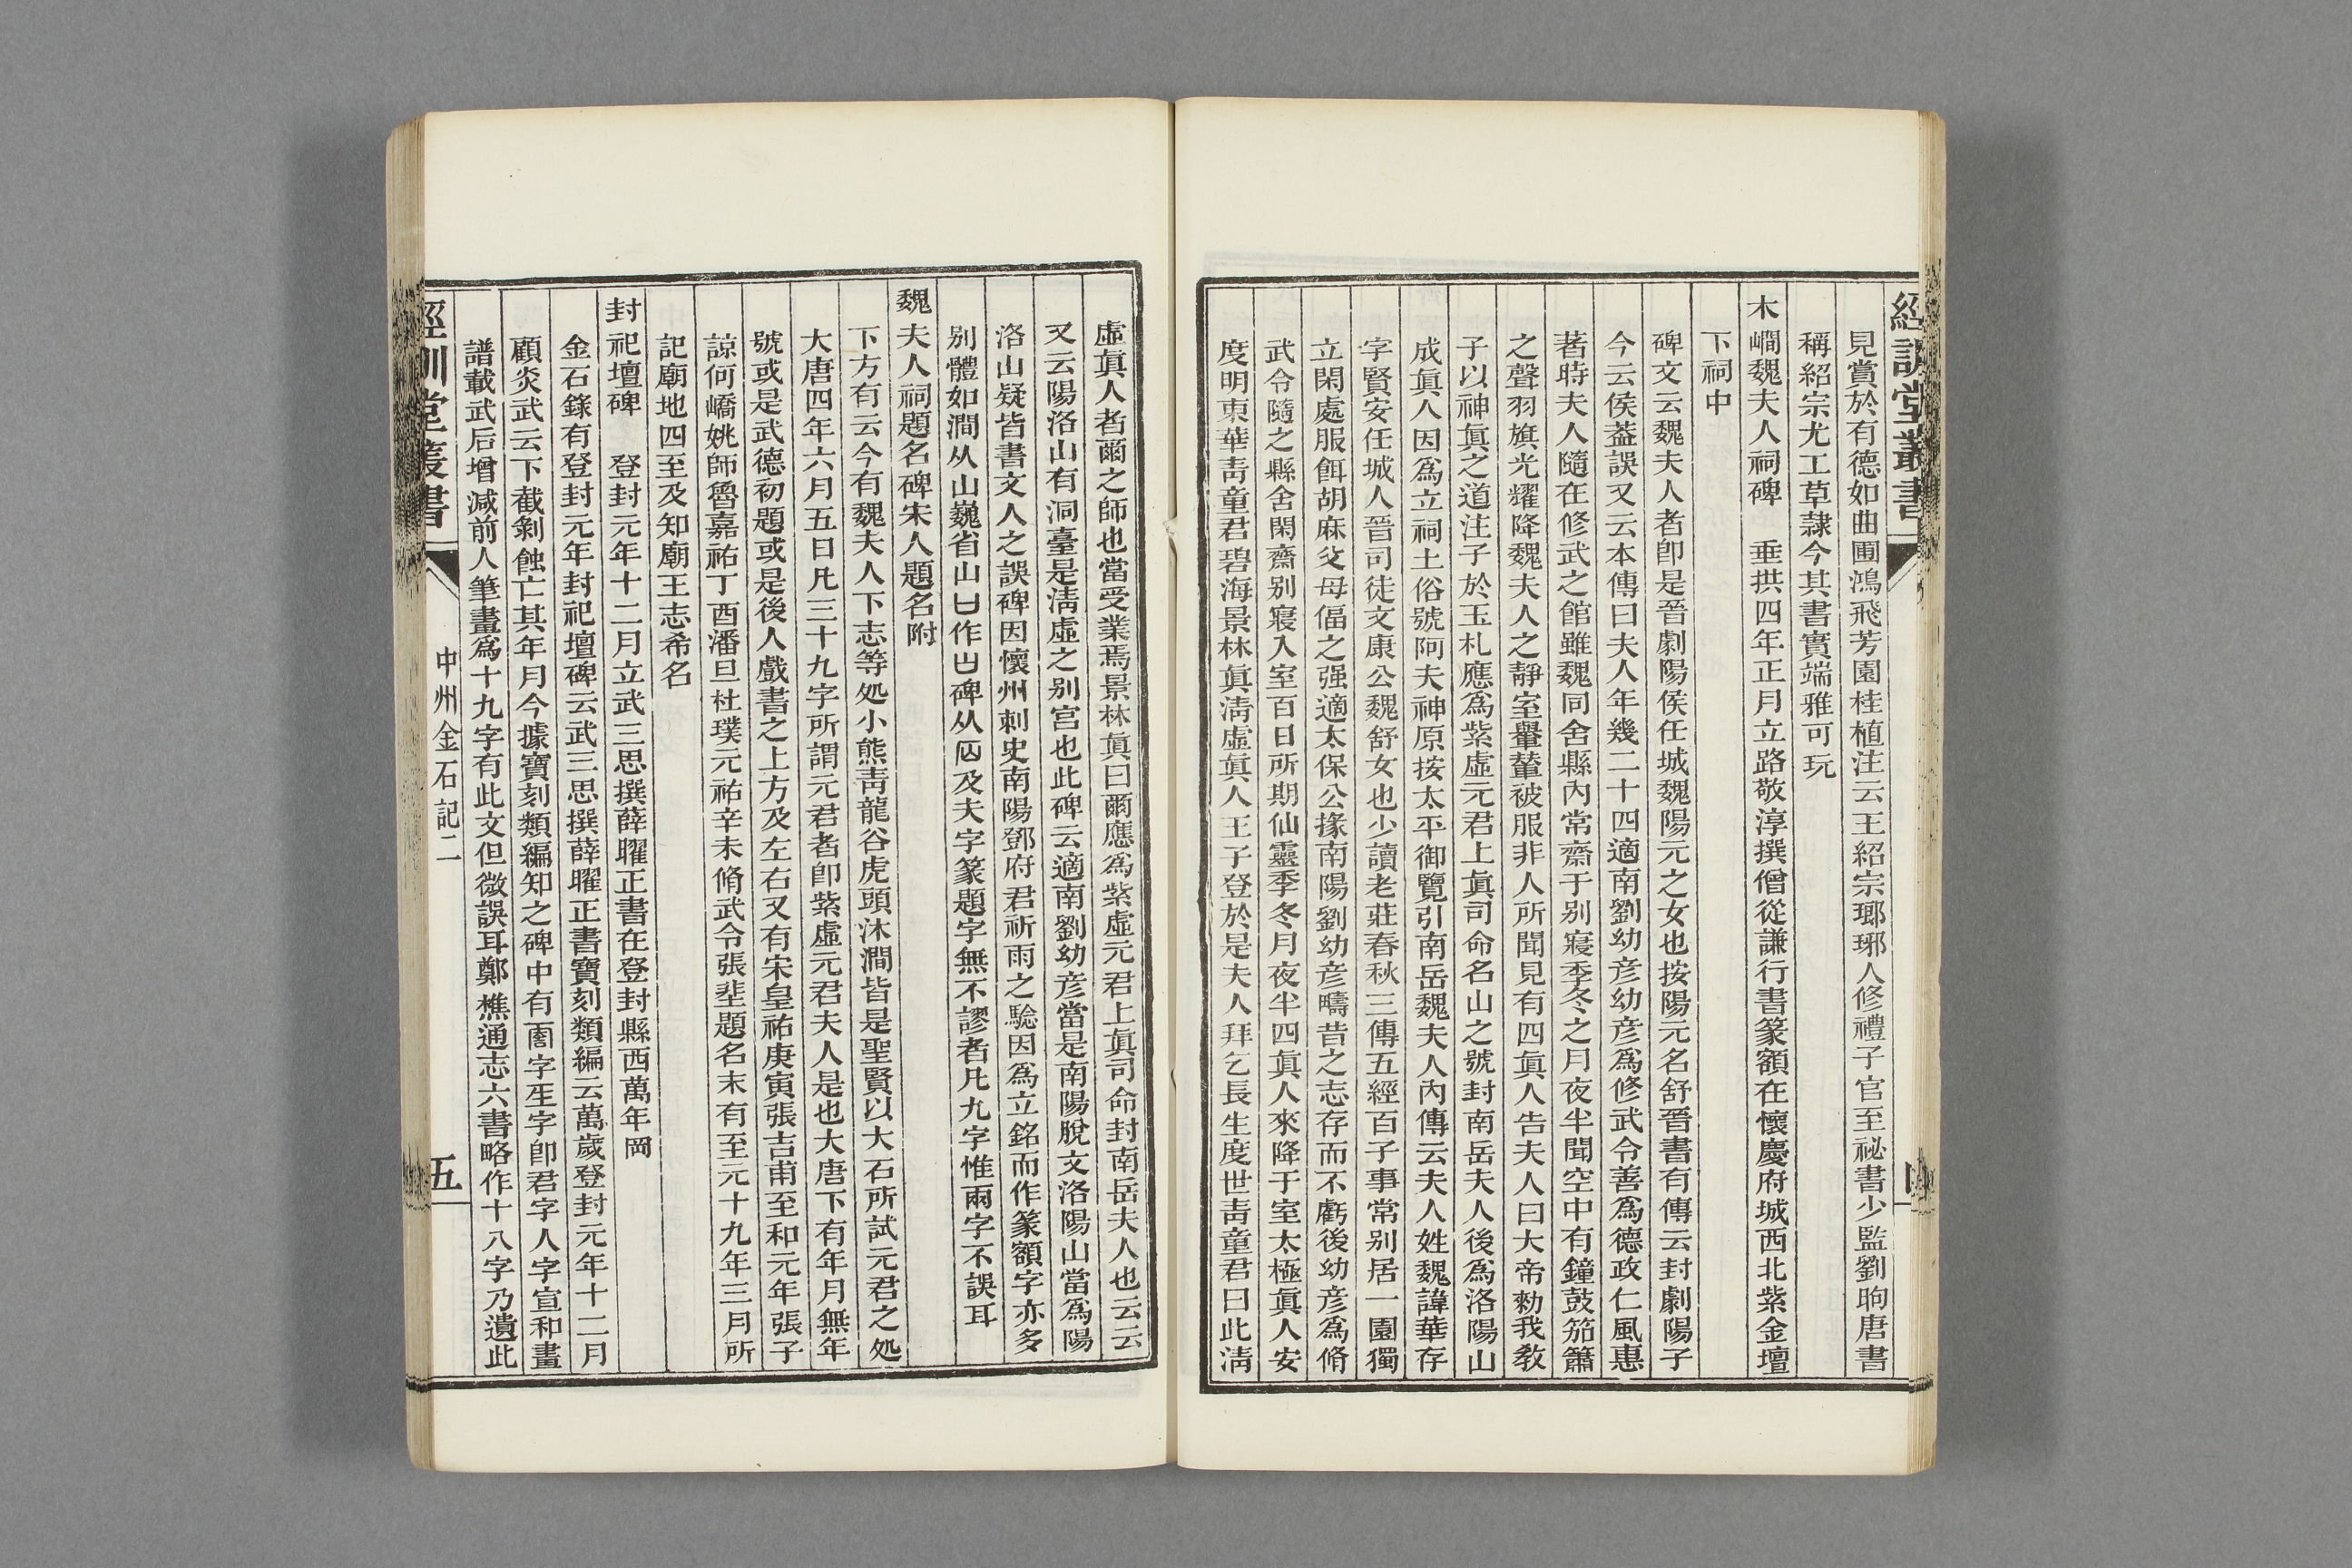 經訓堂叢書
見賞於有德如曲圃鴻飛芳園桂植注云王紹宗瑯琊人修禮子官至祕書少監劉昫唐書
稱紹宗尤工草隷今其書實端雅可玩
木㵎魏夫人祠碑 垂拱四年正月立路敬淳撰僧從謙行書篆額在懷慶府城西北紫金壇
下祠中
碑文云魏夫人者卽是晉劇陽侯任城魏陽元之女也按陽元名舒晉書有傳云封劇陽子
今云侯葢誤又云本傳曰夫人年幾二十四適南劉幼彦幼彦爲修武令善爲德政仁風惠
著時夫人隨在修武之館雖魏同舍縣內常齋于别寢季冬之月夜半聞空中有鐘鼓笳簫
之聲羽旗光耀降魏夫人之靜室轝輦被服非人所聞見有四眞人告夫人曰大帝勑我敎
子以神眞之道注子於玉札應爲紫虛元君上眞司命名山之號封南岳夫人後爲洛陽山
成眞人因爲立祠土俗號阿夫神原按太平御覽引南岳魏夫人內傳云夫人姓魏諱華存
字賢安任城人晉司徒文康公魏舒女也少讀老莊春秋三傳五經百子事常别居一園獨
立閑處服餌胡麻父母偪之强適太保公掾南陽劉幼彦疇昔之志存而不虧後幼彦爲脩
武令隨之縣舍閑齋别寢入室百日所期仙靈季冬月夜半四眞人來降于室太極眞人安
度明東華靑童君碧海景林眞淸虛眞人王子登於是夫人拜乞長生度世靑童君曰此淸
虛眞人者爾之師也當受業焉景林眞曰爾應爲紫虛元君上眞司命封南岳夫人也云云
又云陽洛山有洞臺是淸虛之别宫也此碑云適南劉幼彦當是南陽脫文洛陽山當爲陽
洛山疑皆書文人之誤碑因懷州刺史南陽鄧府君祈雨之騐因爲立銘而作篆額字亦多
别體如㵎从山巍省山
魏夫人祠題名碑宋人題名附
下方有云今有魏夫人下志等処小熊靑龍谷虎頭沐澗皆是聖賢以大石所試元君之処
大唐四年六月五日凡三十九字所謂元君者卽紫虛元君夫人是也大唐下有年月無年
號或是武德初題或是後人戲書之上方及左右又有宋皇祐庚寅張吉甫至和元年張子
諒何嶠姚師魯嘉祐丁酉潘旦杜璞元祐辛未脩武令張壄題名末有至元十九年三月所
記廟地四至及知廟王志希名
封祀壇碑 登封元年十二月立武三思撰薛曜正書在登封縣西萬年岡
金石錄有登封元年封祀壇碑云武三思撰薛曜正書寶刻類編云萬歲登封元年十二月
顧炎武云下截剝蝕亡其年月今據寶刻類編知之碑中有圊字字卽君字人字宣和畫
譜載武后增減前人筆畫爲十九字有此文但微誤耳鄭樵通志六書略作十八字乃遺此
經訓堂叢書
中州金石記二
五